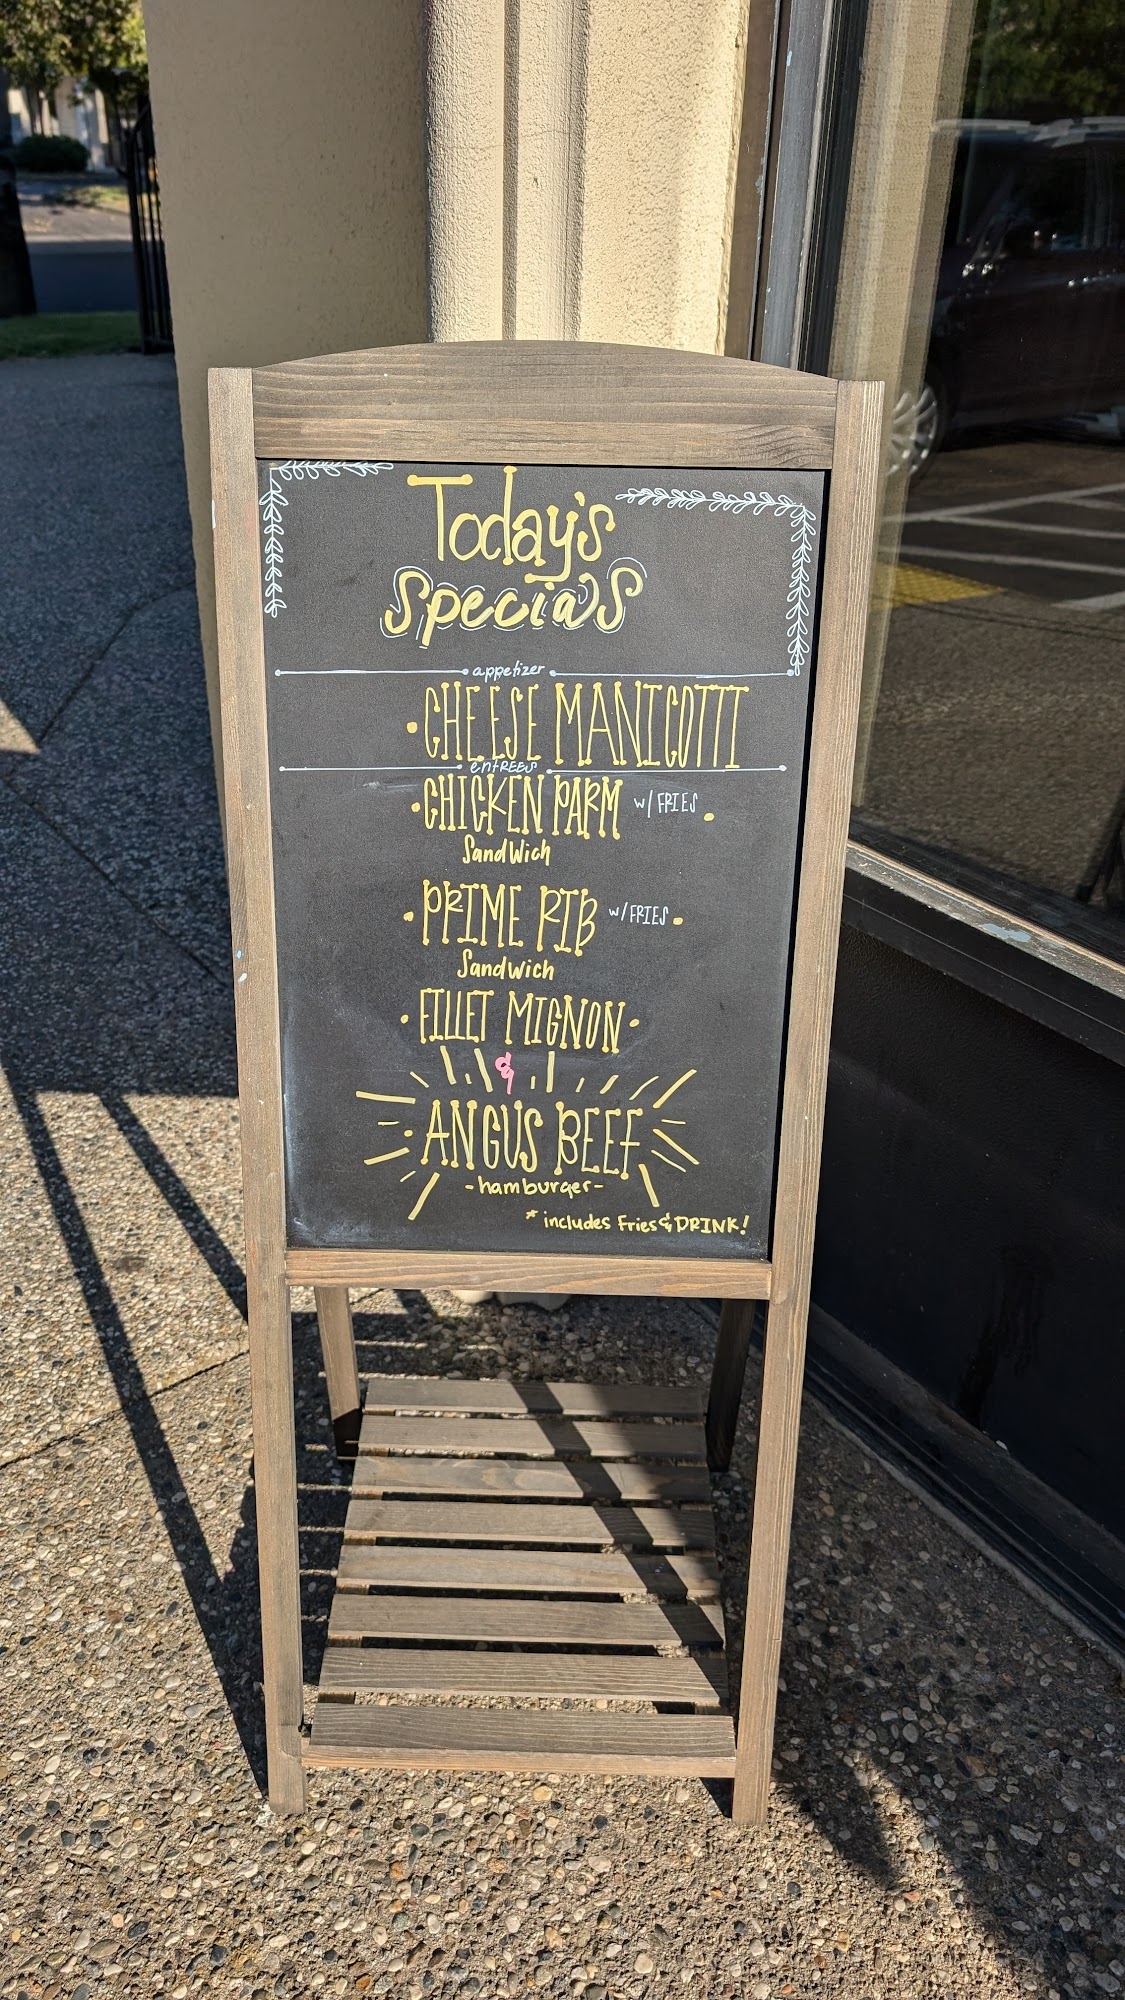 Today's
Specials
appetizer
• CHEESE MANICOTTI
entrees
• CHICKEN PARM w/ FRIES •
Sandwich
• PRIME RIB w/ FRIES •
Sandwich
• FILLET MIGNON •
&
• ANGUS BEEF
- hamburger -
* includes Fries & DRINK!